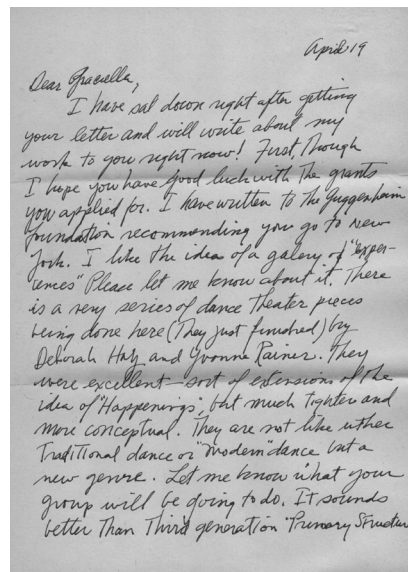 April 19
Dear Graciella,
I have sat down right after getting
your letter and will write about my
work to you right now! First, though
I hope you have good luck with the grants
you applied for. I have written to the Guggenheim
foundation recommending you go to New
York. I like the idea of a galery of "exper-
iences" Please let me know about it. There
is a very series of dance theater pieces
being done here (They just finished) by
Deborah Hay and Yvonne Rainer. They
were excellent – sort of extensions of the
idea of "Happenings", but much tighter and
more conceptual. They are not like either
Traditional dance or "modern" dance but a
new genre. Let me know what your
group will be going to do. It sounds
better Than Third generation "Primary Structure